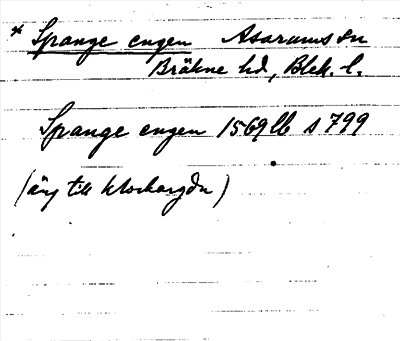 * Spange engen Asarums sn
Bräkne hd, Blek. l.
Spange engen 1569 lb s 799
(äng till klockargdn)